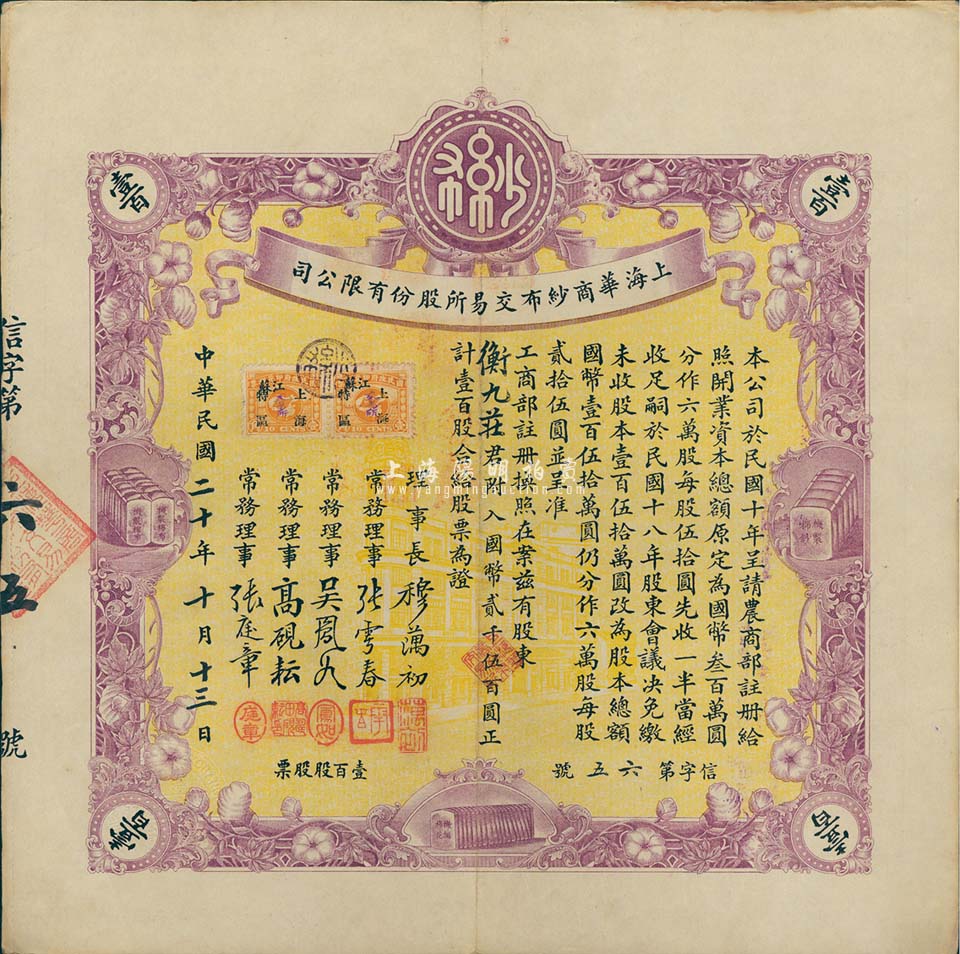 紗布
壹百
壹百
上海華商紗布交易所股份有限公司
本公司於民國十年呈請農商部註册給
照開業資本總額原定為國幣叁百萬圓
分作六萬股每股伍拾圓先收一半當經
收足嗣於民國十八年股東會議决免繳
未收股本壹百伍拾萬圓改為股本總額
國幣壹百伍拾萬圓仍分作六萬股每股
貳拾伍圓並呈准
工商部註册換照在案茲有股東
衡九莊君附入國幣貳千伍百圓正
計壹百股合給股票為證
理事長 穆藕初
常務理事 張雩春
常務理事 吳鳳如
常務理事 高硯耘
常務理事 張庭章
中華民國二十年十月十三日
信字第六五號
壹百股股票
信字第 六五 號
江蘇
上海
特區
江蘇
上海
特區
10 CENTS
10 CENTS
上海陽明拍賣
www.yangmingauction.com
壹百
壹百